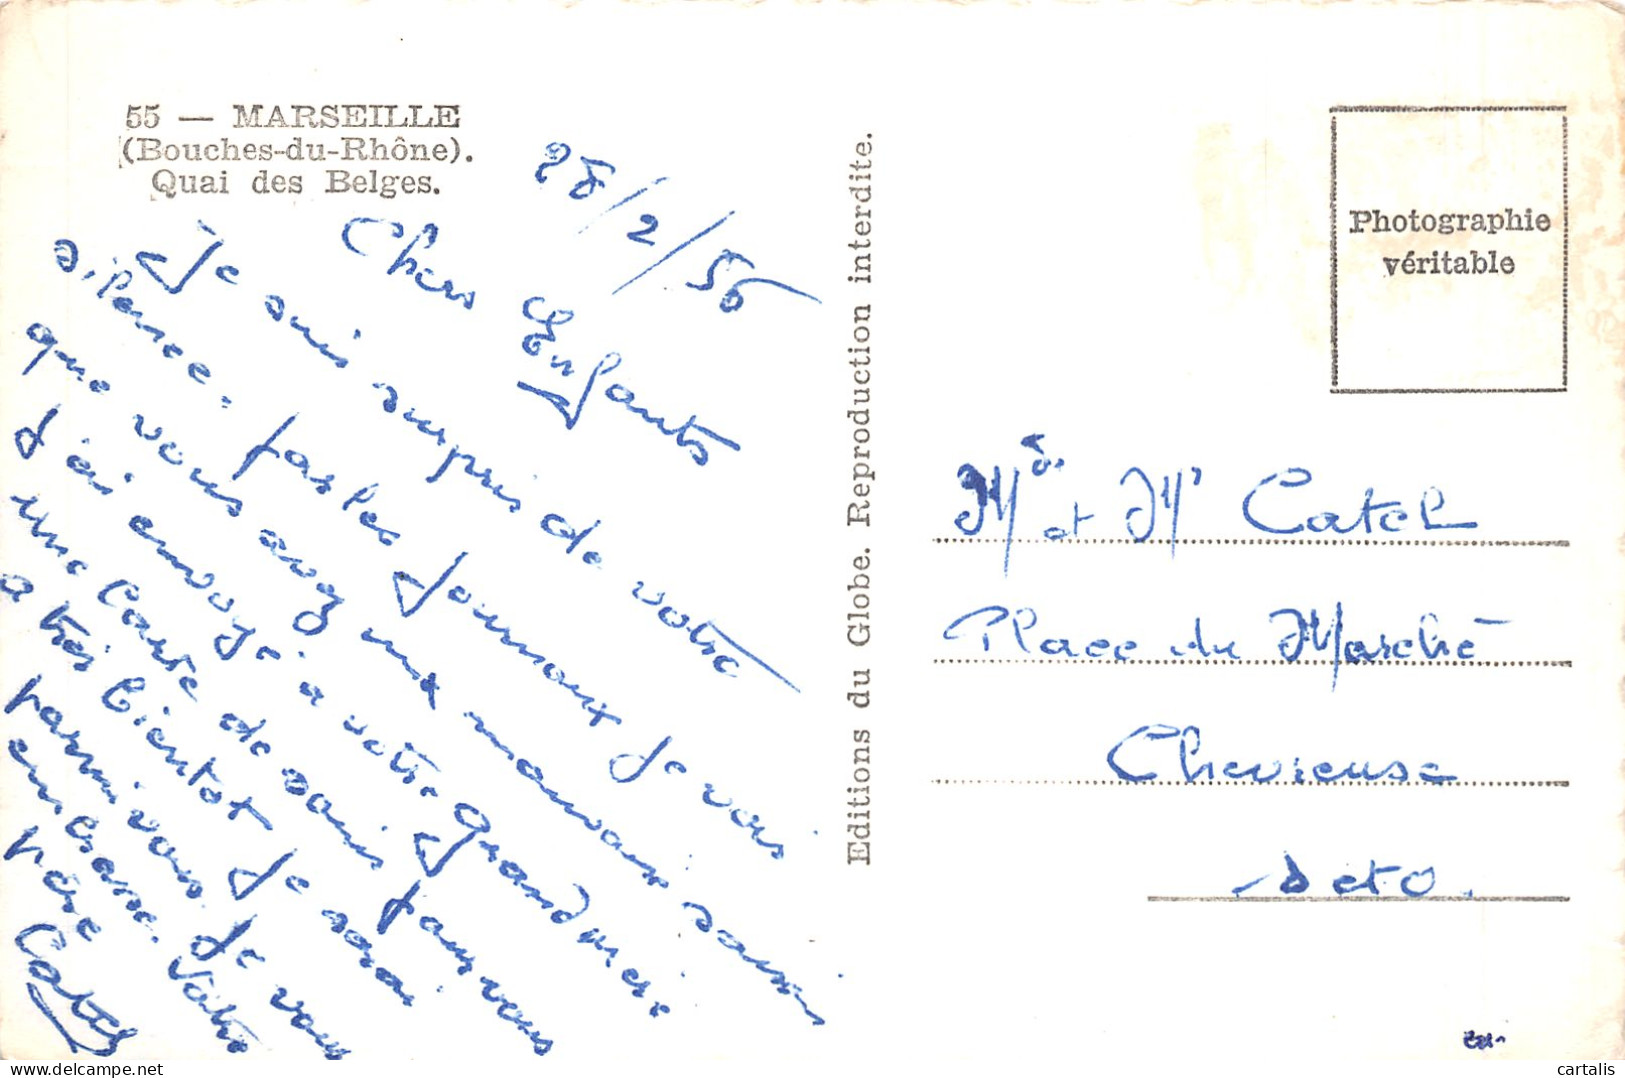 55 — MARSEILLE
(Bouches-du-Rhône).
Quai des Belges.
28/2/56
Chers Enfants
Je suis surpris de votre
silence. par les journaux je vois
que vous avez un mauvais
j'ai envoyé à votre Grand mère
une Carte de pour vous
a très bientot je serai
parmi vous. Je vous
embrasse. Votre
père
Catel
Editions du Globe. Reproduction interdite.
Photographie
véritable
et Mr Catel
Place du Marché
Chevreuse
S et O.
cartalis